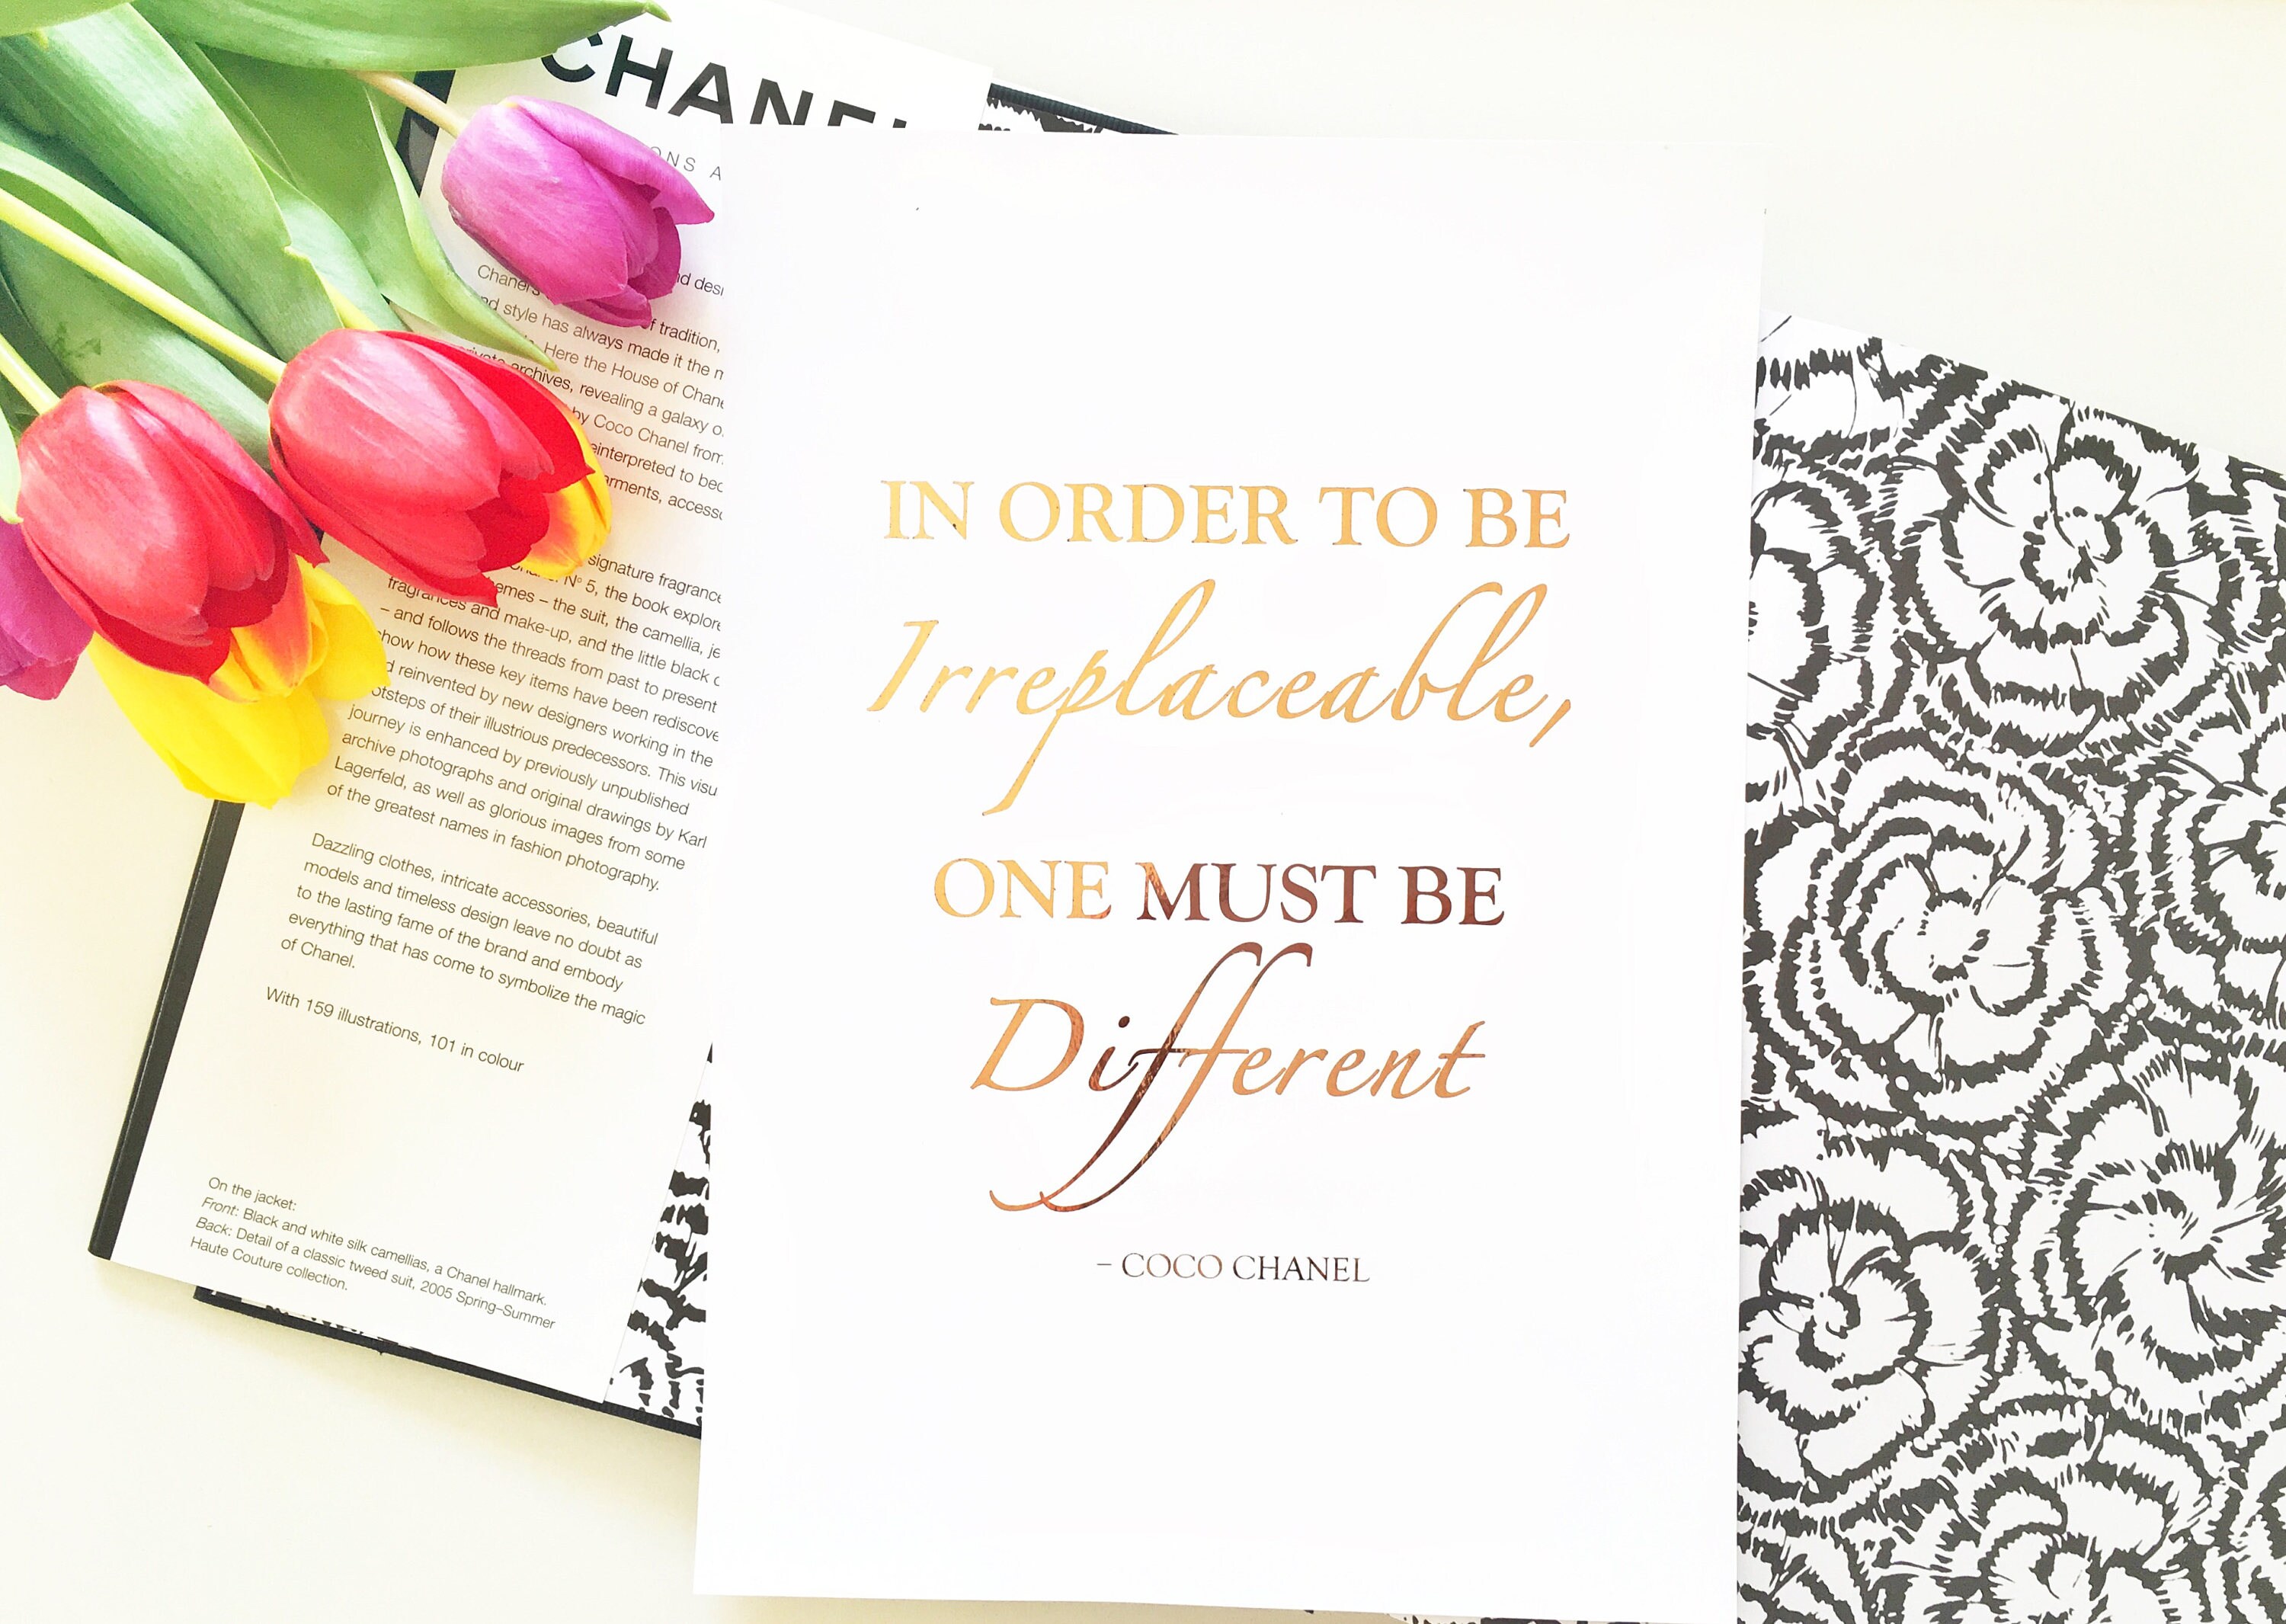 CHANEL
ONS A
Chanel's
nd desi
nd style has always
f tradition,
made it the m
Here the House of Chane
private archives, revealing a galaxy o
by Coco Chanel from
einterpreted to bec
arments, accesso
signature fragrance
Nº 5, the book explore
fragrances and make-up, and the little black d
emes – the suit, the camellia, je
– and follows the threads from past to present
how how these key items have been rediscove
d reinvented by new designers working in the
otsteps of their illustrious predecessors. This visu
journey is enhanced by previously unpublished
archive photographs and original drawings by Karl
Lagerfeld, as well as glorious images from some
of the greatest names in fashion photography.
Dazzling clothes, intricate accessories, beautiful
models and timeless design leave no doubt as
to the lasting fame of the brand and embody
everything that has come to symbolize the magic
of Chanel.
With 159 illustrations, 101 in colour
On the jacket:
Front: Black and white silk camellias, a Chanel hallmark.
Back: Detail of a classic tweed suit, 2005 Spring–Summer
Haute Couture collection.
IN ORDER TO BE
Irreplaceable,
ONE MUST BE
Different
– COCO CHANEL